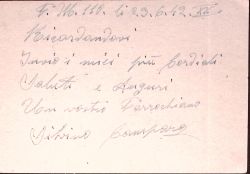 P. M. 118. li 23.6.42. XX.
Ricordandovi
Invio i miei più Cordiali
Saluti e Auguri
Un vostro Parrochiano
Silvino Comparo